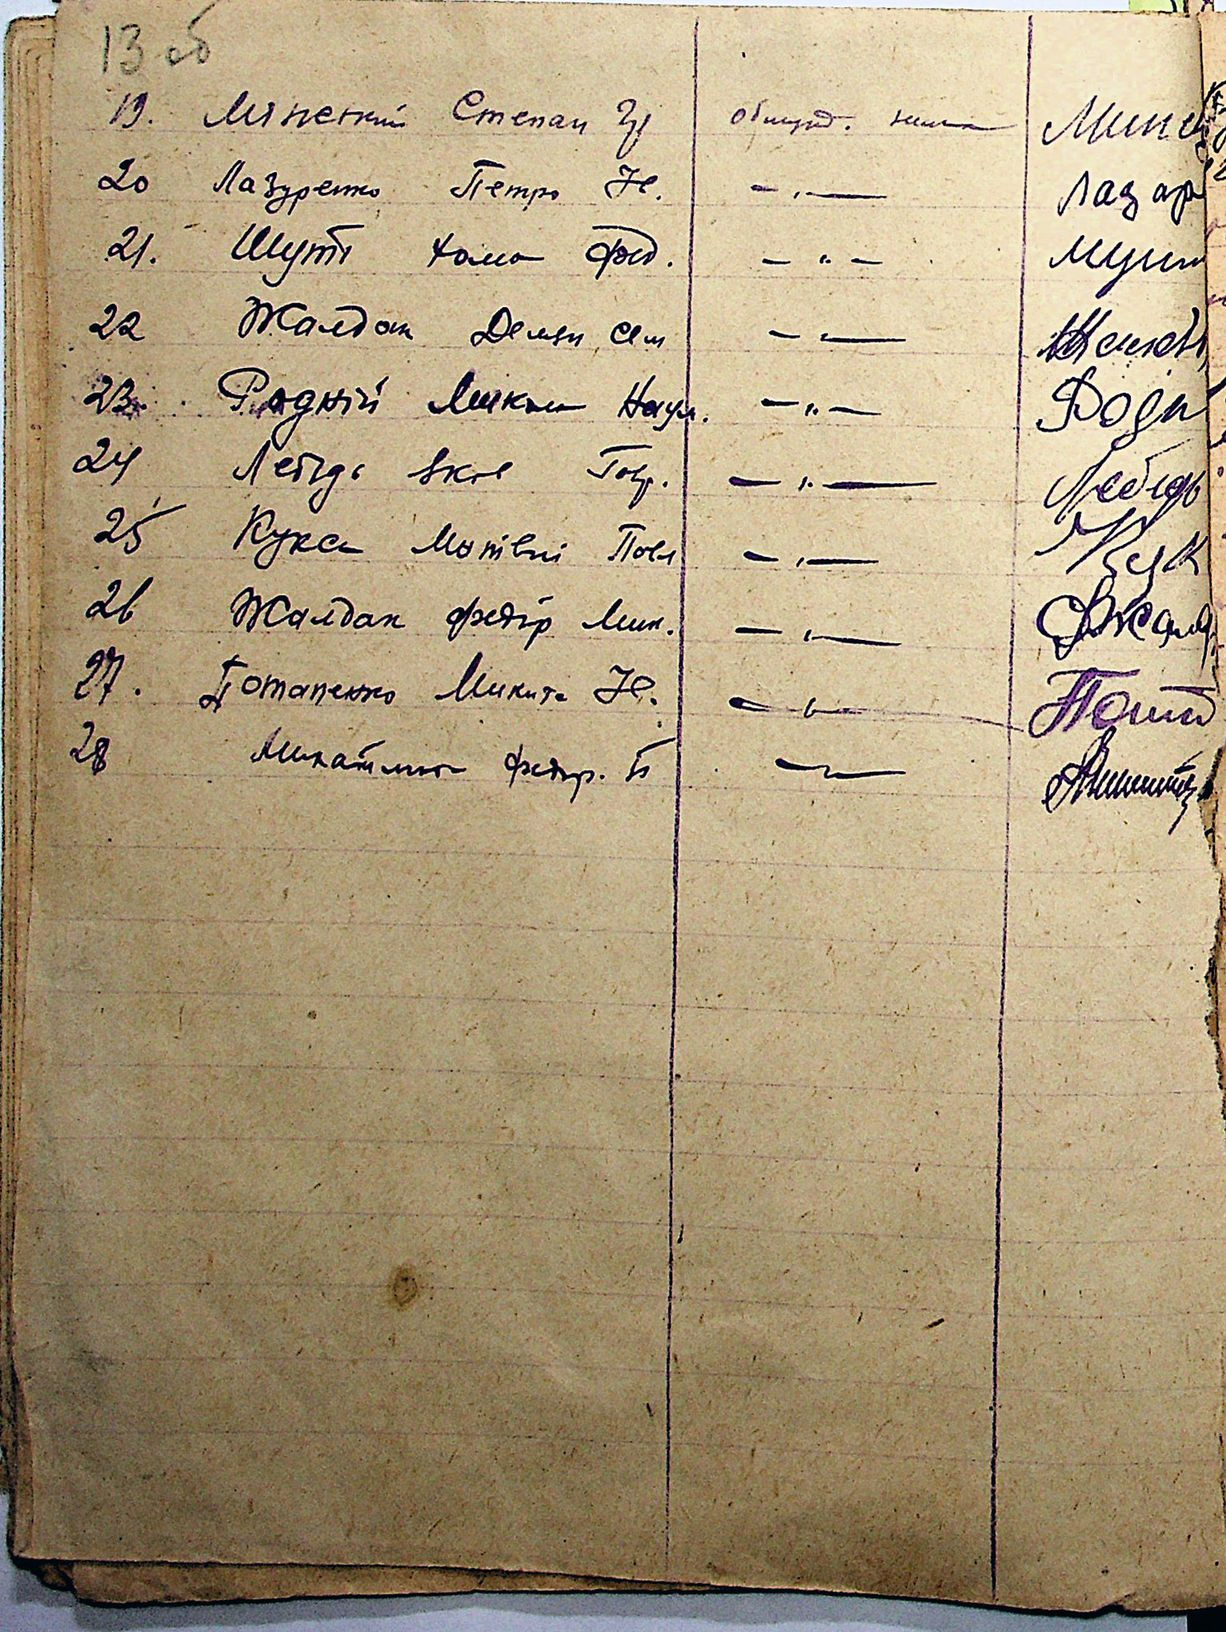 13 об
19. Мінський Степан Гр
20 Лазуренко Петро Ів. — „ — Лазар
21. Шуть Хома Фед. — „ — Шуть
22 Жалдак Демян Сем — „ —
23. Родній Микола Наум. — „ — Родн
24 Лебідь Яков Гавр. — „ — Лебедь
25 Кукса Мотвій Павл — „ — Кук
26 Жалдак Федір Мик. — „ — Жалд
27. Потапенко Микита Ів. — „ — Пота
28 Федор. — „ —